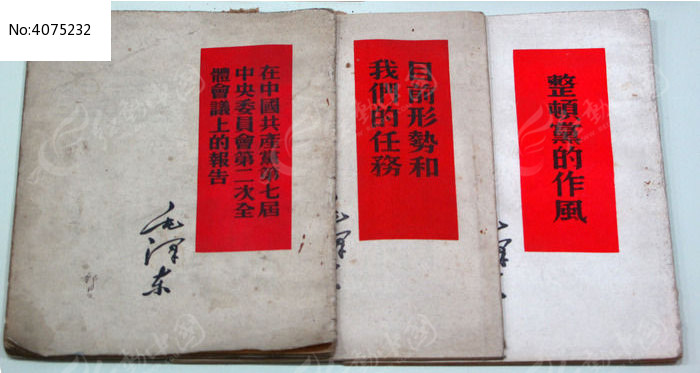 No:4075232
在中國共產黨第七屆
中央委員會第二次全
體會議上的報告
毛澤东
目前形勢和
我們的任務
整頓黨的作風